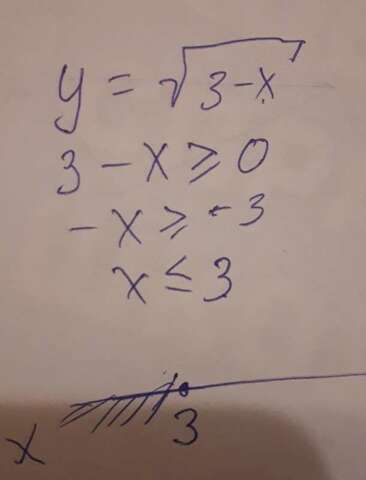 y = √(3-x)
3 - x ≥ 0
- x ≥ -3
x ≤ 3
3
x